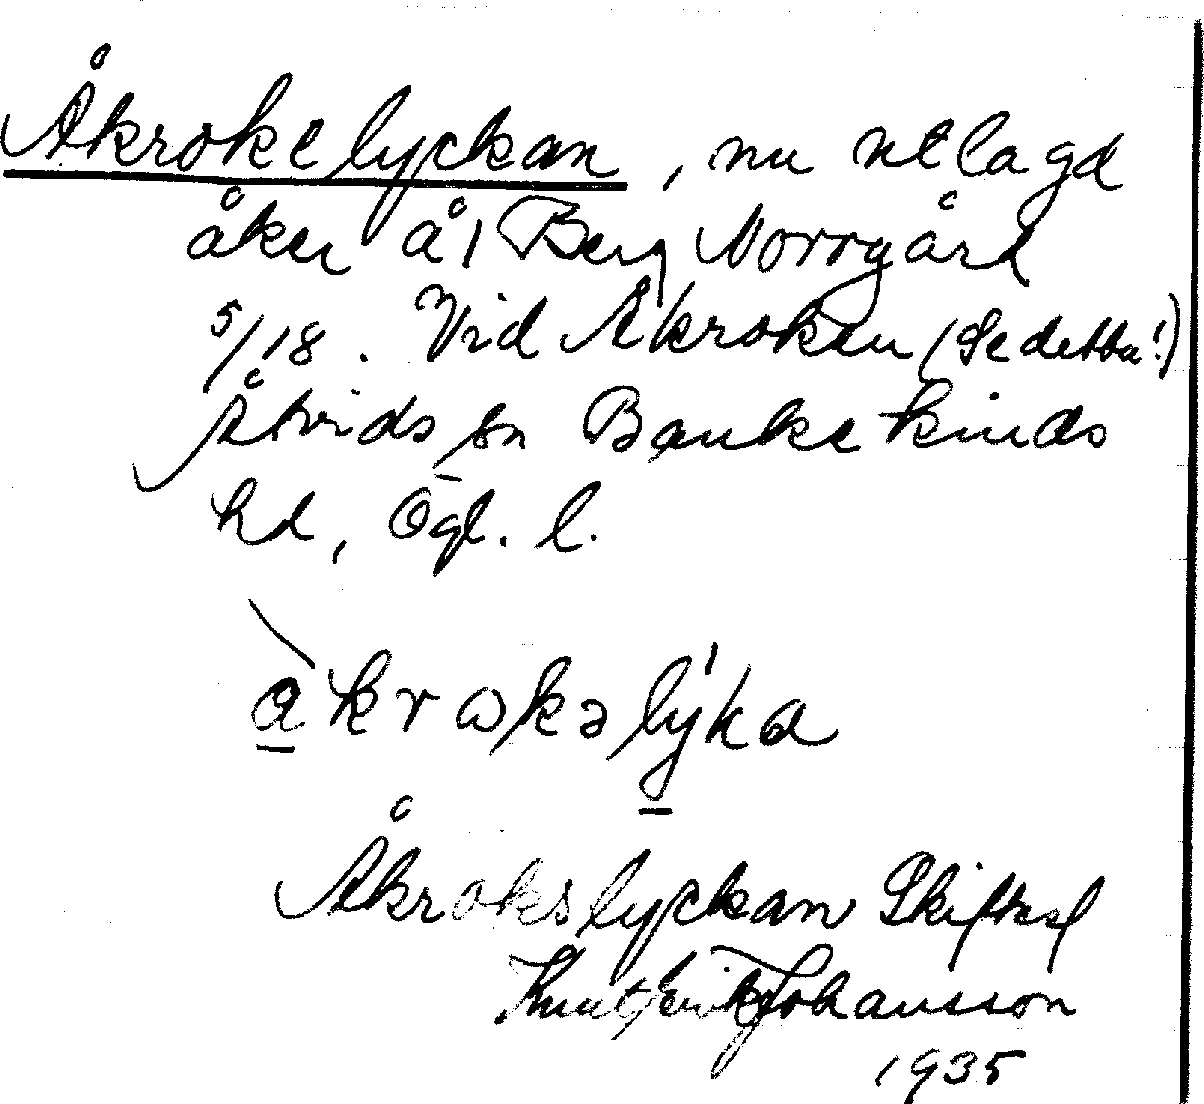 Åkrokelyckan, nu utlagd
åker åt Berg Norrgård
5/18. Vid Åkroken (Se detta!)
Åtvids sn Bankekinds
hd, Ögl. l.
åkrokəlýka
Åkrokslyckan Skifteskl
Knut Erik Johansson
1935